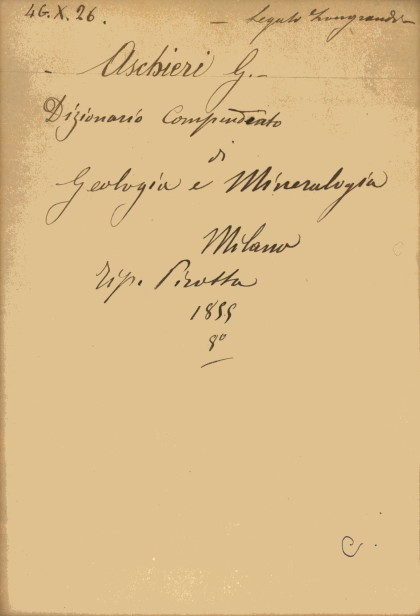 46.X.26. — Legato Zongrandi —
- Aschieri G. -
Dizionario Compendiato
di
Geologia e Mineralogia
Milano
Tip. Pirotta
1855
8°
C.